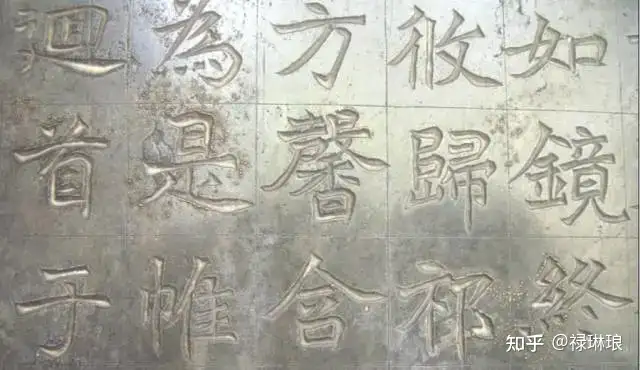 如鏡終
攸歸祁
方馨含
為是帷
迴首于
知乎 @禄琳琅